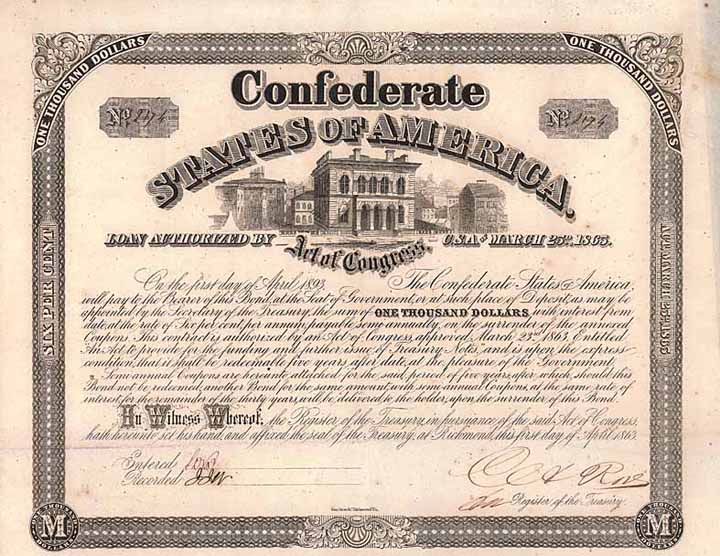 ONE THOUSAND DOLLARS
ONE THOUSAND DOLLARS
Confederate
No. 294
No. 294
STATES OF AMERICA.
LOAN AUTHORIZED BY Act of Congress, C.S.A. of MARCH 23rd. 1863.
On the first day of April, 1893, The Confederate States of America,
will pay to the Bearer of this Bond, at the Seat of Government, or at such place of Deposit, as may be
appointed by the Secretary of the Treasury, the sum of ONE THOUSAND DOLLARS, with interest from
date at the rate of Six per cent. per annum, payable semi annually, on the surrender of the annexed
Coupons. This contract is authorized by an Act of Congress, approved March 23rd 1863, Entitled
An Act to provide for the funding and further issue of Treasury Notes, and is upon the express
condition, that it shall be redeemable five years after date, at the pleasure of the Government
Coupons are hereunto attached for the said period of five years, after which, should this
Bond not be redeemed, another Bond for the same amount, with semi annual Coupons, at the same rate of
interest, for the remainder of the thirty years, will be delivered to the holder, upon the surrender of this Bond.
In Witness Whereof, the Register of the Treasury, in pursuance of the said Act of Congress,
hath hereunto set his hand, and affixed the seal of the Treasury, at Richmond, this first day of April 1863.
Entered
Recorded
Register of the Treasury.
SIX PER CENT
M
ONE THOUSAND
DOLLARS
M
ONE THOUSAND
DOLLARS